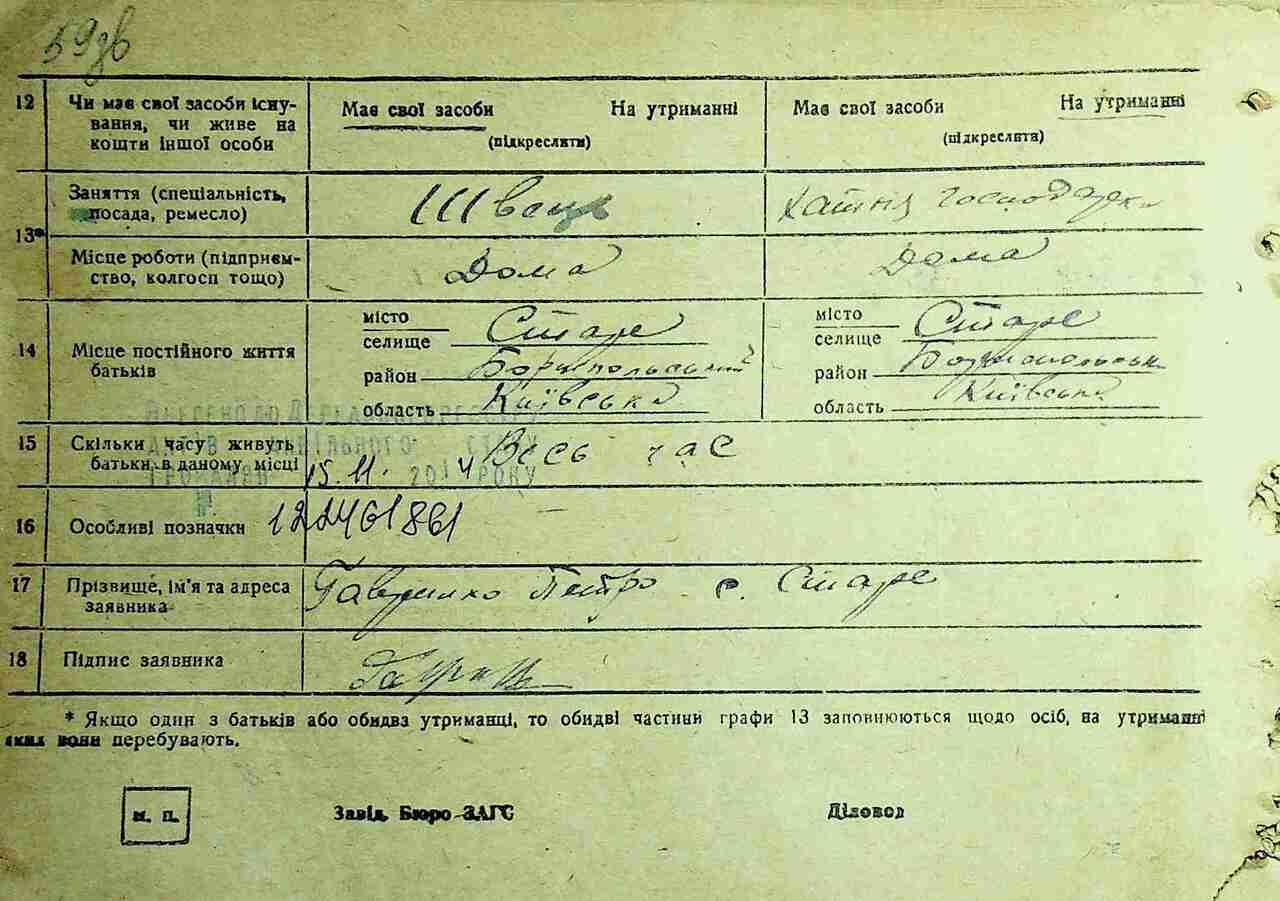 59зв
12 Чи має свої засоби існу-
вання, чи живе на
кошти іншої особи
Має свої засоби На утриманні
(підкреслити)
Має свої засоби На утриманні
(підкреслити)
13* Заняття (спеціальність,
посада, ремесло)
Швець
Хатня господарка
Місце роботи (підприєм-
ство, колгосп тощо)
Дома
Дома
14 Місце постійного життя
батьків
місто
селище Старе
район Бориспольський
область Київська
місто
селище Старе
район Бориспольська
область Київська
15 Скільки часу живуть
батьки в даному місці
Весь час
15.11. 2014 РОКУ
16 Особливі позначки 122461861
17 Прізвище, ім'я та адреса
заявника
Гавриленко Петро с. Старе
18 Підпис заявника
* Якщо один з батьків або обидва утриманці, то обидві частини графи 13 заповнюються щодо осіб, на утриманні
яких вони перебувають.
м. п.
Завід. Бюро ЗАГС
Діловод